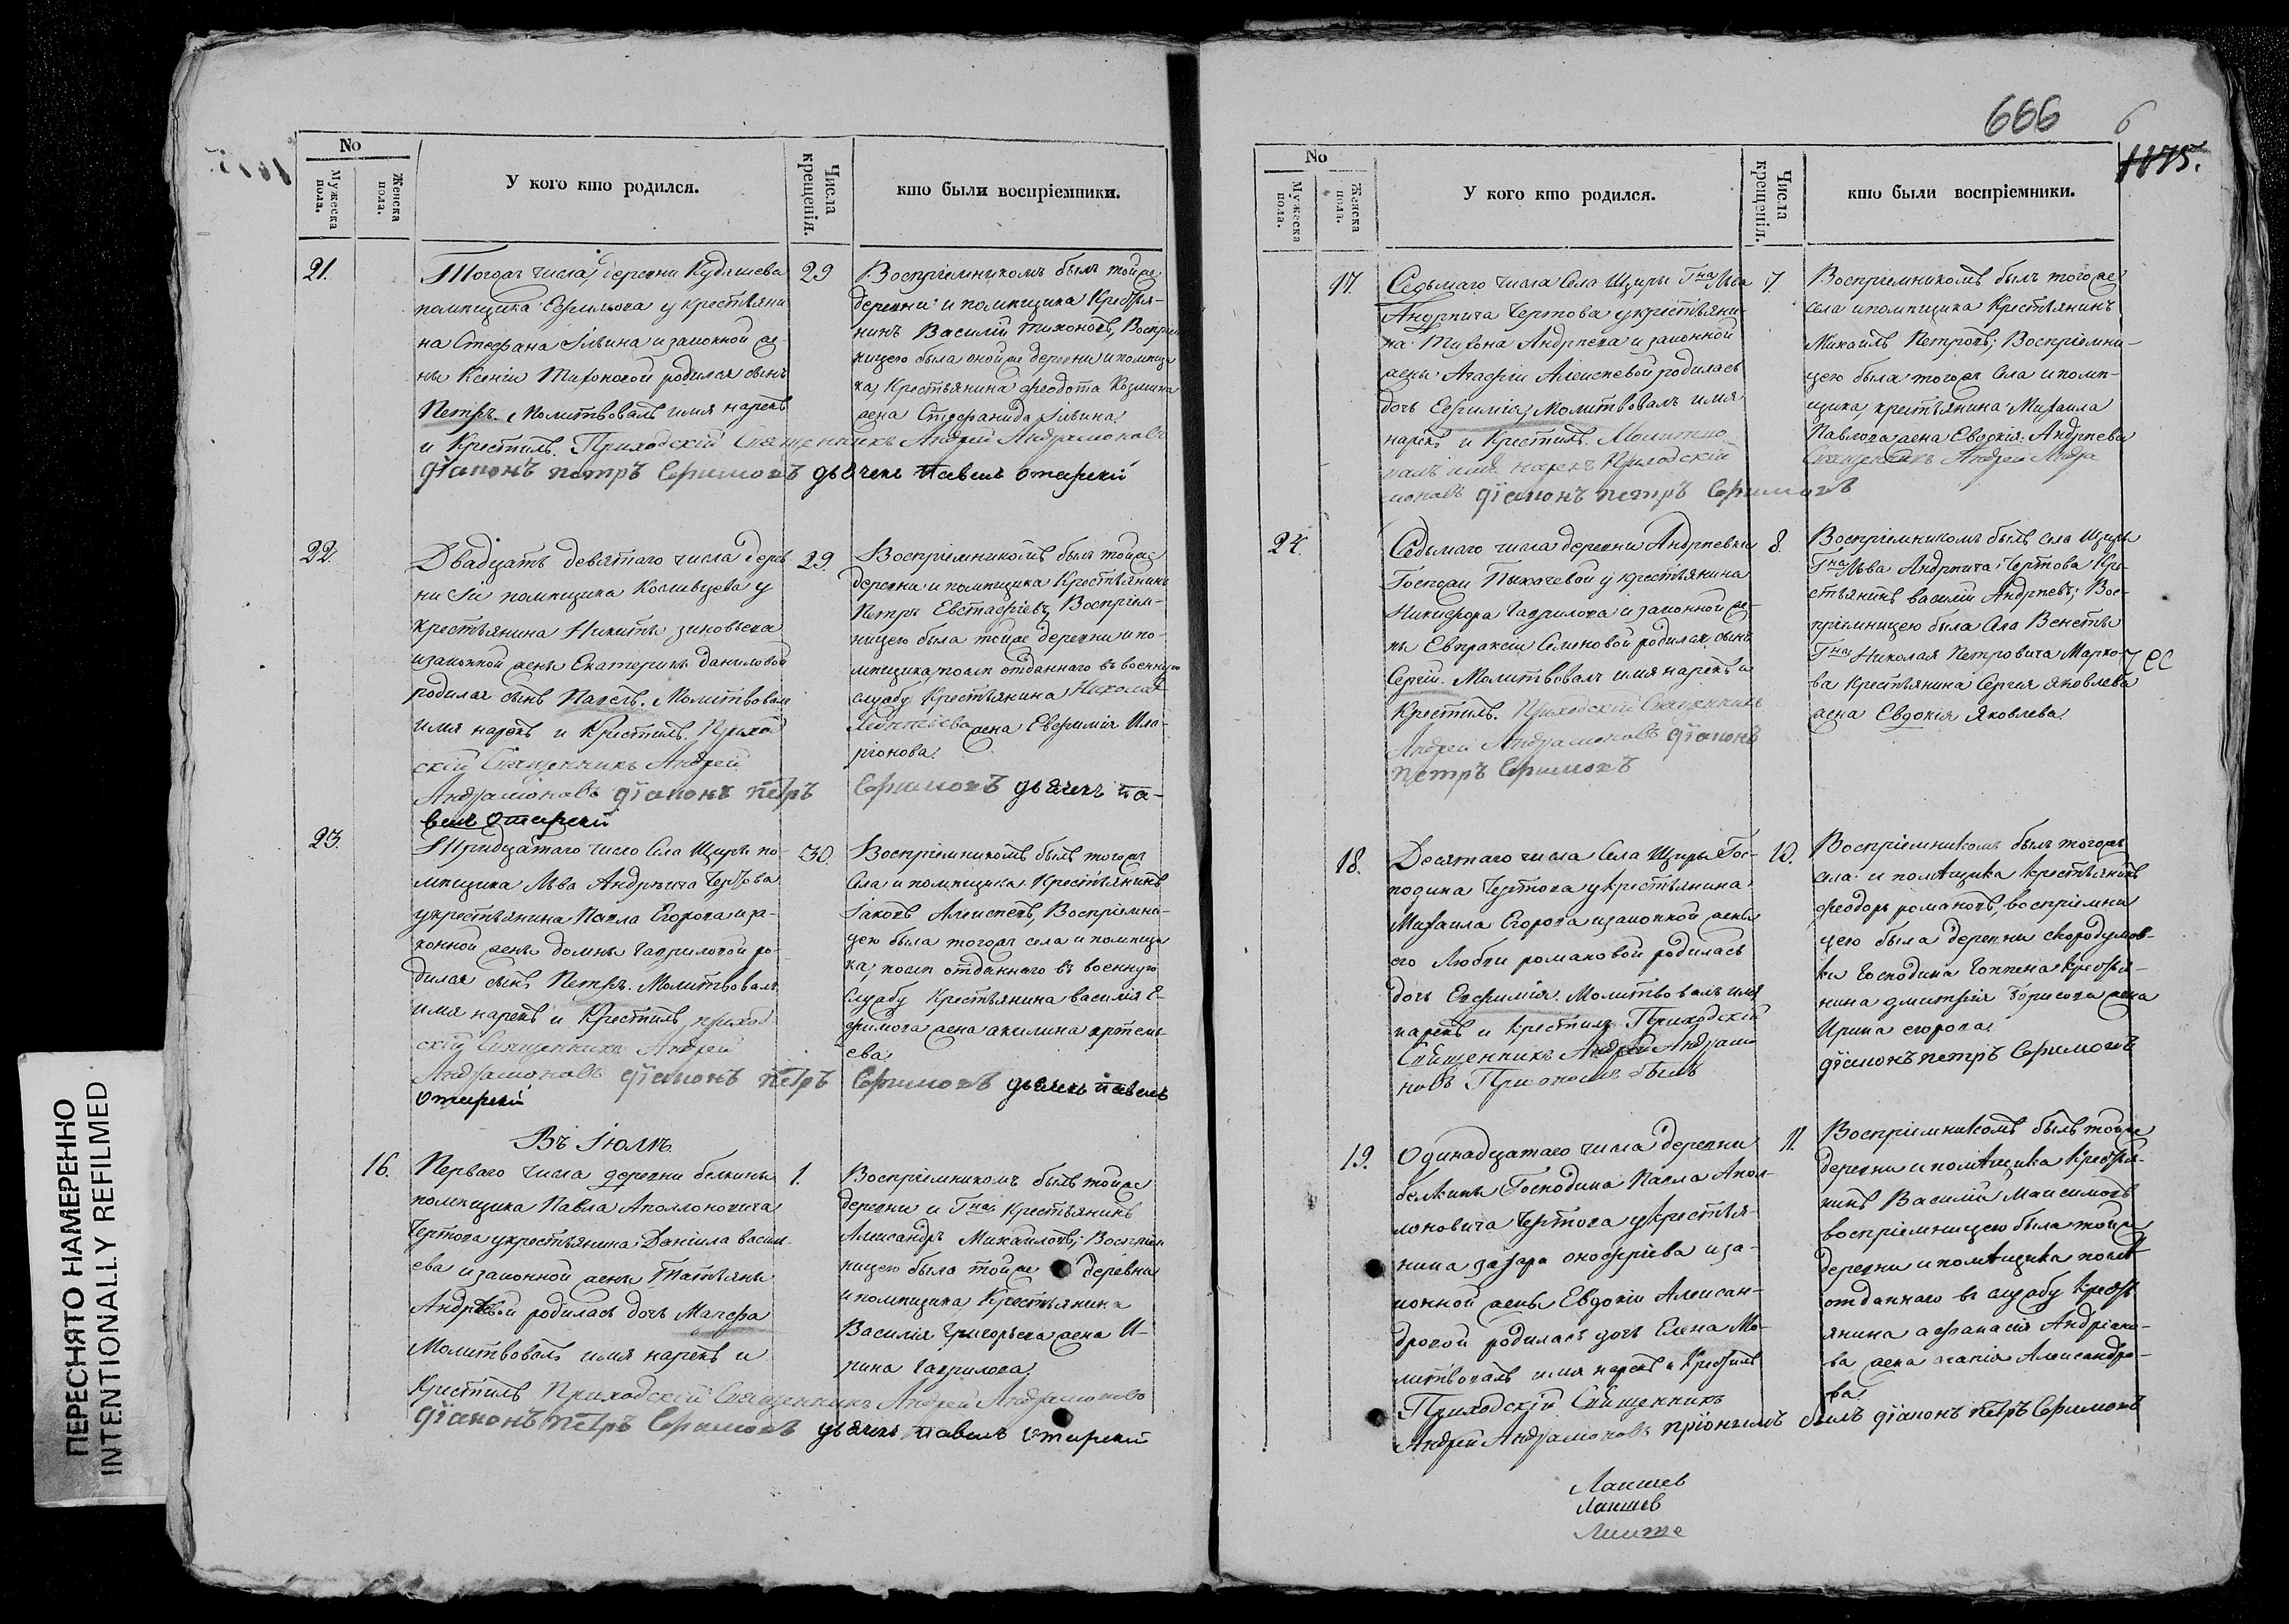 666 6
1175.
ПЕРЕСНЯТО НАМЕРЕННО
INTENTIONALLY REFILMED
No
Мужеска пола.
Женска пола.
У кого кто родился.
Числа крещенія.
кто были воспріемники.
21.
Тогожъ числа, деревни Кудашева
помѣщика Ефимьева у крестьяни
на Стефана Ильина и законной же
ны Ксеніи Тихоновой родился сынъ
Петръ. Молитвовалъ имя нарекъ
и Крестилъ. Приходскій Священникъ Андрей Андрамоновъ
діаконъ петръ Ефимовъ дьячекъ павелъ
29
Воспріемникомъ былъ тойже
деревни и помѣщика Крестья-
нинъ Василій Тихоновъ, Воспріем
ницею была онойже деревни и помѣщи
ка, Крестьянина Феодота Козмина
жена Стефанида Ильина.
22.
Двадцать девятаго числа дерев
ни помѣщика у
крестьянина Никиты Зиновьева
изаконной жены Екатерины даниловой
родился сынъ Павелъ. Молитвовалъ
имя нарекъ и Крестилъ. Приход
скій Священникъ Андрей
Андрамоновъ діаконъ петръ Ефимовъ дьячекъ па-
велъ
29.
Воспріемникомъ былъ тойже
деревни и помѣщика Крестьянинъ
Петръ Евстафіевъ, Воспріем-
ницею была тойже деревни и по-
мѣщика, послѣ отданнаго въ военную
службу Крестьянина Николая
жена Евфимія Ила-
ріонова.
23.
Тридцатаго число Села Щиры по-
мѣщика Льва Андрѣича Чертова
укрестьянина Павла Егорова иза-
конной жены домны гавриловой ро-
дился сынъ Петръ. Молитвовалъ
имя нарекъ и Крестилъ, приход-
скій Священникъ Андрей
Андрамоновъ діаконъ петръ Ефимовъ дьячекъ павелъ
30.
Воспріемникомъ былъ тогожъ
Села и помѣщика Крестьянинъ
Іаковъ Алексѣевъ, Воспріемни-
цею была тогожъ села и помѣщи
ка, послѣ отданнаго въ военную
Службу Крестьянина василія Е-
фимова жена акилина артемь-
ева
Въ Іюлѣ
16.
Перваго числа деревни белкины
помѣщика Павла Аполлоновича
Чертова укрестьянина Даніила васил-
ева изаконной жены Татьяны
Андрѣевой родилась дочь Марѳа
Молитвовалъ имя нарекъ и
Крестилъ Приходскій Священникъ Андрей Андрамоновъ
діаконъ петръ Ефимовъ дьячекъ павелъ
1.
Воспріемникомъ былъ тойже
деревни и Гна Крестьянинъ
Александръ Михайловъ; Воспріем
ницею была тойже деревни
и помѣщика Крестьянина
Василія Григорьева жена И-
рина гаврилова.
No
Мужеска пола.
Женска пола.
У кого кто родился.
Числа крещенія.
кто были воспріемники.
17.
Седьмаго числа Села Щиры Гна Льва
Андрѣича Чертова укрестьяни-
на Тихона Андрѣева и законной
жены Агафіи Алексѣевой родилась
дочь Евфимія, Молитвовалъ имя
нарекъ и Крестилъ. Молитво
валъ имя нарекъ Приходскій
Священникъ Андрей Андра
моновъ діаконъ петръ Ефимовъ
7
Воспріемникомъ былъ тогоже
села ипомѣщика Крестьянинъ
Михаилъ Петровъ; Воспріемни-
цею была тогожъ Села и помѣ-
щика, крестьянина Михаила
Павлова жена Евдокія Андрѣева
24.
Седьмаго числа деревни Андрѣевки
Госпожи у крестьянина
Никифора Гаврилова и законной же-
ны Евпраксіи Семеновой родился сынъ
Сергій. Молитвовалъ имя нарекъ и
Крестилъ. Приходскій Священникъ
Андрей Андрамоновъ діаконъ
петръ Ефимовъ
8.
Воспріемникомъ былъ села Щиры
Гна Льва Андрѣича Чертова Кре-
стьянинъ василій Андрѣевъ; Вос-
пріемницею была Села
Гна Николая Петровича Марко-
ва Крестьянина Сергея Яковлева
жена Евдокія Яковлева.
18.
Десятаго числа Села Щиры Гос-
подина Чертова укрестьянина
Михаила Егорова изаконной жены
его Любви романовой родилась
дочь Евфимія. Молитвовалъ имя
нарекъ и крестилъ Приходскій
Священникъ Андрей Андрамо
новъ При ономъ былъ
10.
Воспріемникомъ былъ тогожъ
села и помѣщика Крестьянинъ
феодоръ романовъ, воспріемни
цею была деревни скородумов-
ки господина крестья-
нина дмитрія борисова жена
Ирина егорова.
діаконъ петръ Ефимовъ
19.
Одинадцатаго числа деревни
белкины Господина Павла Апол-
лоновича Чертова укрестья-
нина захара онофріева иза-
конной жены Евдокіи Алексан-
дровой родилась дочь Елена Мо-
литвовалъ имя нарекъ и Крестилъ
Приходскій Священникъ
Андрей Андрамоновъ пріономъ былъ діаконъ петръ Ефимовъ
11.
Воспріемникомъ былъ тойже
деревни и помѣщика Крестья-
нинъ Василій Максимовъ
воспріемницею была тойже
деревни и помѣщика послѣ
отданнаго въ службу Кресть
янина афанасія Андріано-
ва жена агапія Александро-
ва.